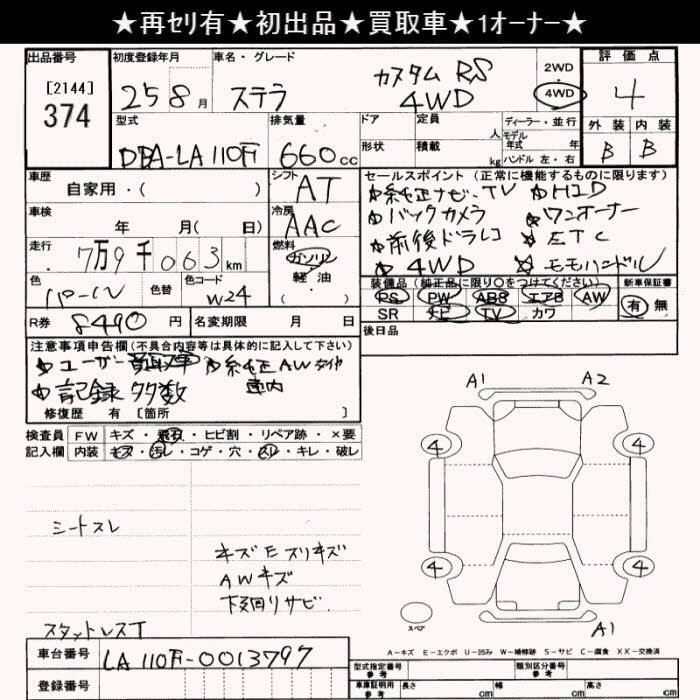 ★再ｾﾘ有★初出品★買取車★1ｵｰﾅｰ★
出品番号 初度登録年月 車名・グレード 評価点
[2144] 374
25 8月 ステラ カスタム RS 4WD 2WD・4WD 4
型式 排気量 ドア 定員 人 ディーラー・並行 外装 内装
DBA-LA110F 660cc 形状 積載 kg モデル年式 年 ハンドル 左・右 B B
車歴 自家用・( ) シフト AT
セールスポイント (正常に機能するものに限ります)
☆純正ナビ、TV ☆HID
☆バックカメラ ☆ワンオーナー
☆前後ドラレコ ☆ETC
☆4WD ☆モモハンドル
車検 年 月( 日) 冷房 AAC
走行 7万9千063km 燃料 ガソリン 軽油 ( ・ )
色 パール 色替 色コード W24
装備品 (純正品に限り○をつけてください) 新車保証書
PS PW ABS エアB AW 有・無
SR ナビ TV カワ
R券 8490円 名変期限 月 日
後日品
注意事項申告欄(不具合内容等は具体的に記入して下さい)
☆ユーザー買取車 ☆純正AW
☆記録多数 車内
修復歴 有 [箇所 ]
検査員 FW キズ・飛石・ヒビ割・リペア跡・×要
記入欄 内装 キズ・汚レ・コゲ・穴・スレ・キレ・破レ
A1 A2
4 4
シートスレ
キズEスリキズ
AWキズ
下廻リサビ
4 4
スペア
A1
スタットレスT
A－キズ E－エクボ U－凹み W－補修跡 S－サビ C－腐食 XX－交換済
車台番号 LA110F-0013797
型式指定番号 参考 類別区分番号 参考
登録番号
車庫証明用 参考 長さ cm 幅 cm 高さ cm